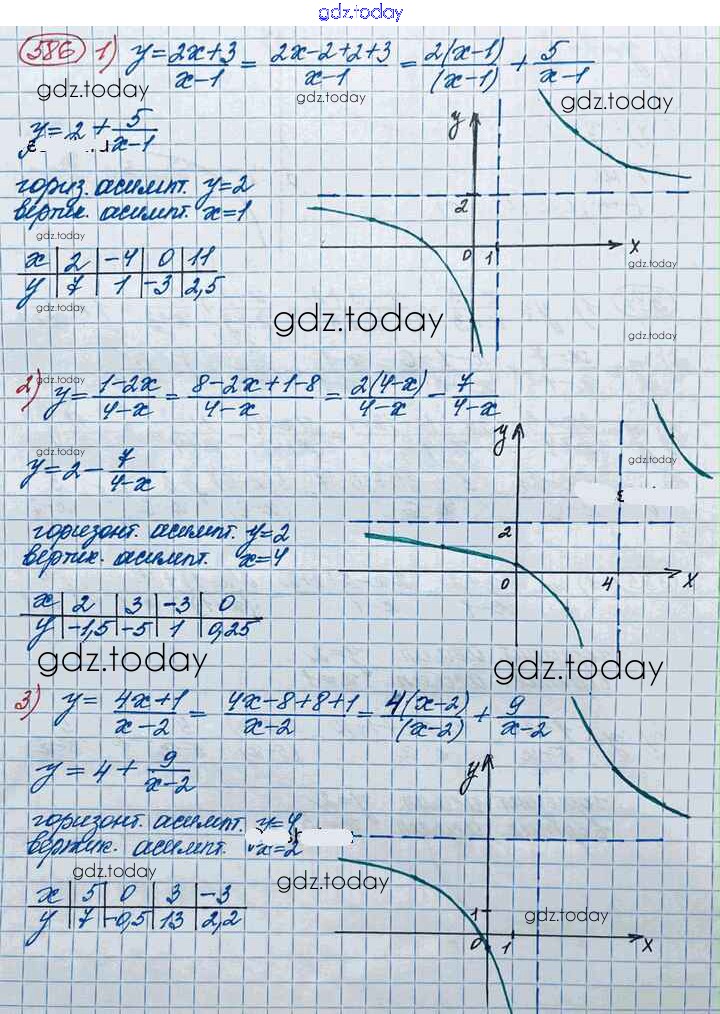 gdz.today
586 1) y = 2x+3/x-1 = 2x-2+2+3/x-1 = 2(x-1)/(x-1) + 5/x-1
gdz.today gdz.today gdz.today
y = 2 + 5/x-1
гориз. асимпт. y=2
вертик. асимпт. x=1
gdz.today
x | 2 | -4 | 0 | 11
y | 7 | 1 | -3 | 2,5
y
2
0 1 x
gdz.today
gdz.today
gdz.today
2) y = 1-2x/4-x = 8-2x+1-8/4-x = 2(4-x)/4-x - 7/4-x
gdz.today
y = 2 - 7/4-x
gdz.today
gdz.today
горизонт. асимпт. y=2
вертик. асимпт. x=4
x | 2 | 3 | -3 | 0
y | -1,5 | -5 | 1 | 0,25
y
2
0 4 x
gdz.today
gdz.today
3) y = 4x+1/x-2 = 4x-8+8+1/x-2 = 4(x-2)/(x-2) + 9/x-2
y = 4 + 9/x-2
горизонт. асимпт. y=4
вертик. асимпт. x=2
gdz.today
gdz.today
x | 5 | 0 | 3 | -3
y | 7 | -0,5 | 13 | 2,2
y
1
0 1 x
gdz.today